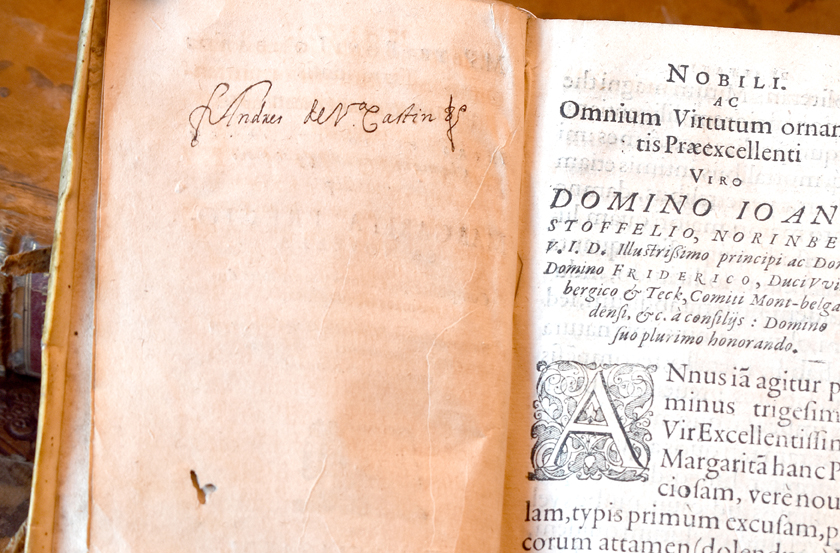 Andres de V.ª Castin
NOBILI.
AC
Omnium Virtutum ornan
tis Præexcellenti
VIRO
DOMINO IOAN
STOFFELIO, NORINBE
V. I. D. Illustrißimo principi ac Dom
Domino FRIDERICO, Duci Vvi
bergico & Teck, Comiti Mont-belga
densi, &c. à consilijs : Domino
suo plurimo honorando.
ANnus iã agitur p
minus trigesim
Vir Excellentissim
Margaritã hanc P
ciosam, verè nou
lam, typis primùm excusam, p
corum attamen (dolend